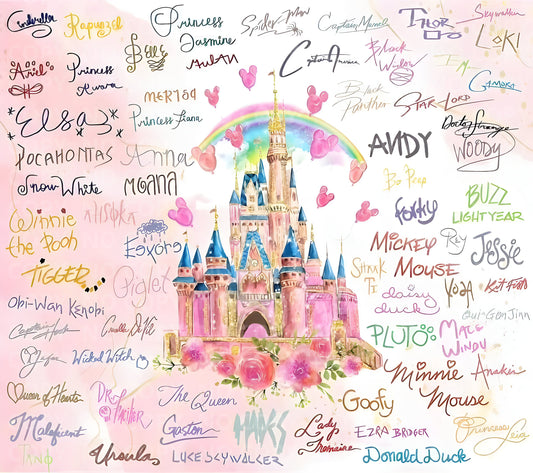 Cinderella
Rapunzel
Princess
Jasmine
Spider Man
Captain Marvel
THOR
Skywalker
LOKI
Belle
MULAN
Captain America
Black
Widow
I'M
GAMORA
Ariel
Princess
Aurora
MERIDA
Black
Panther
STAR-LORD
*Elsa*
Princess Tiana
ANDY
Doctor Strange
WOODY
POCAHONTAS
Anna
Bo Peep
BUZZ
LIGHTYEAR
Snow White
MOANA
forky
Winnie
the Pooh
AHSOKA
Eeyore
MICKEY
MOUSE
Rey
Jessie
TIGGER
Piglet
Shaak
Ti
daisy
duck
YODA
Kit Fisto
Obi-Wan Kenobi
Qui-Gon Jinn
Captain Hook
Cruella De Vil
PLUTO
MACE
WINDU
Wicked Witch
Minnie
Mouse
Anakin
Queen of Hearts
DR
FACILIER
The Queen
Goofy
Maleficent
Gaston
HADES
Lady
Tremaine
EZRA BRIDGER
Princess Leia
TANO
Ursula
LUKE SKYWALKER
Donald Duck